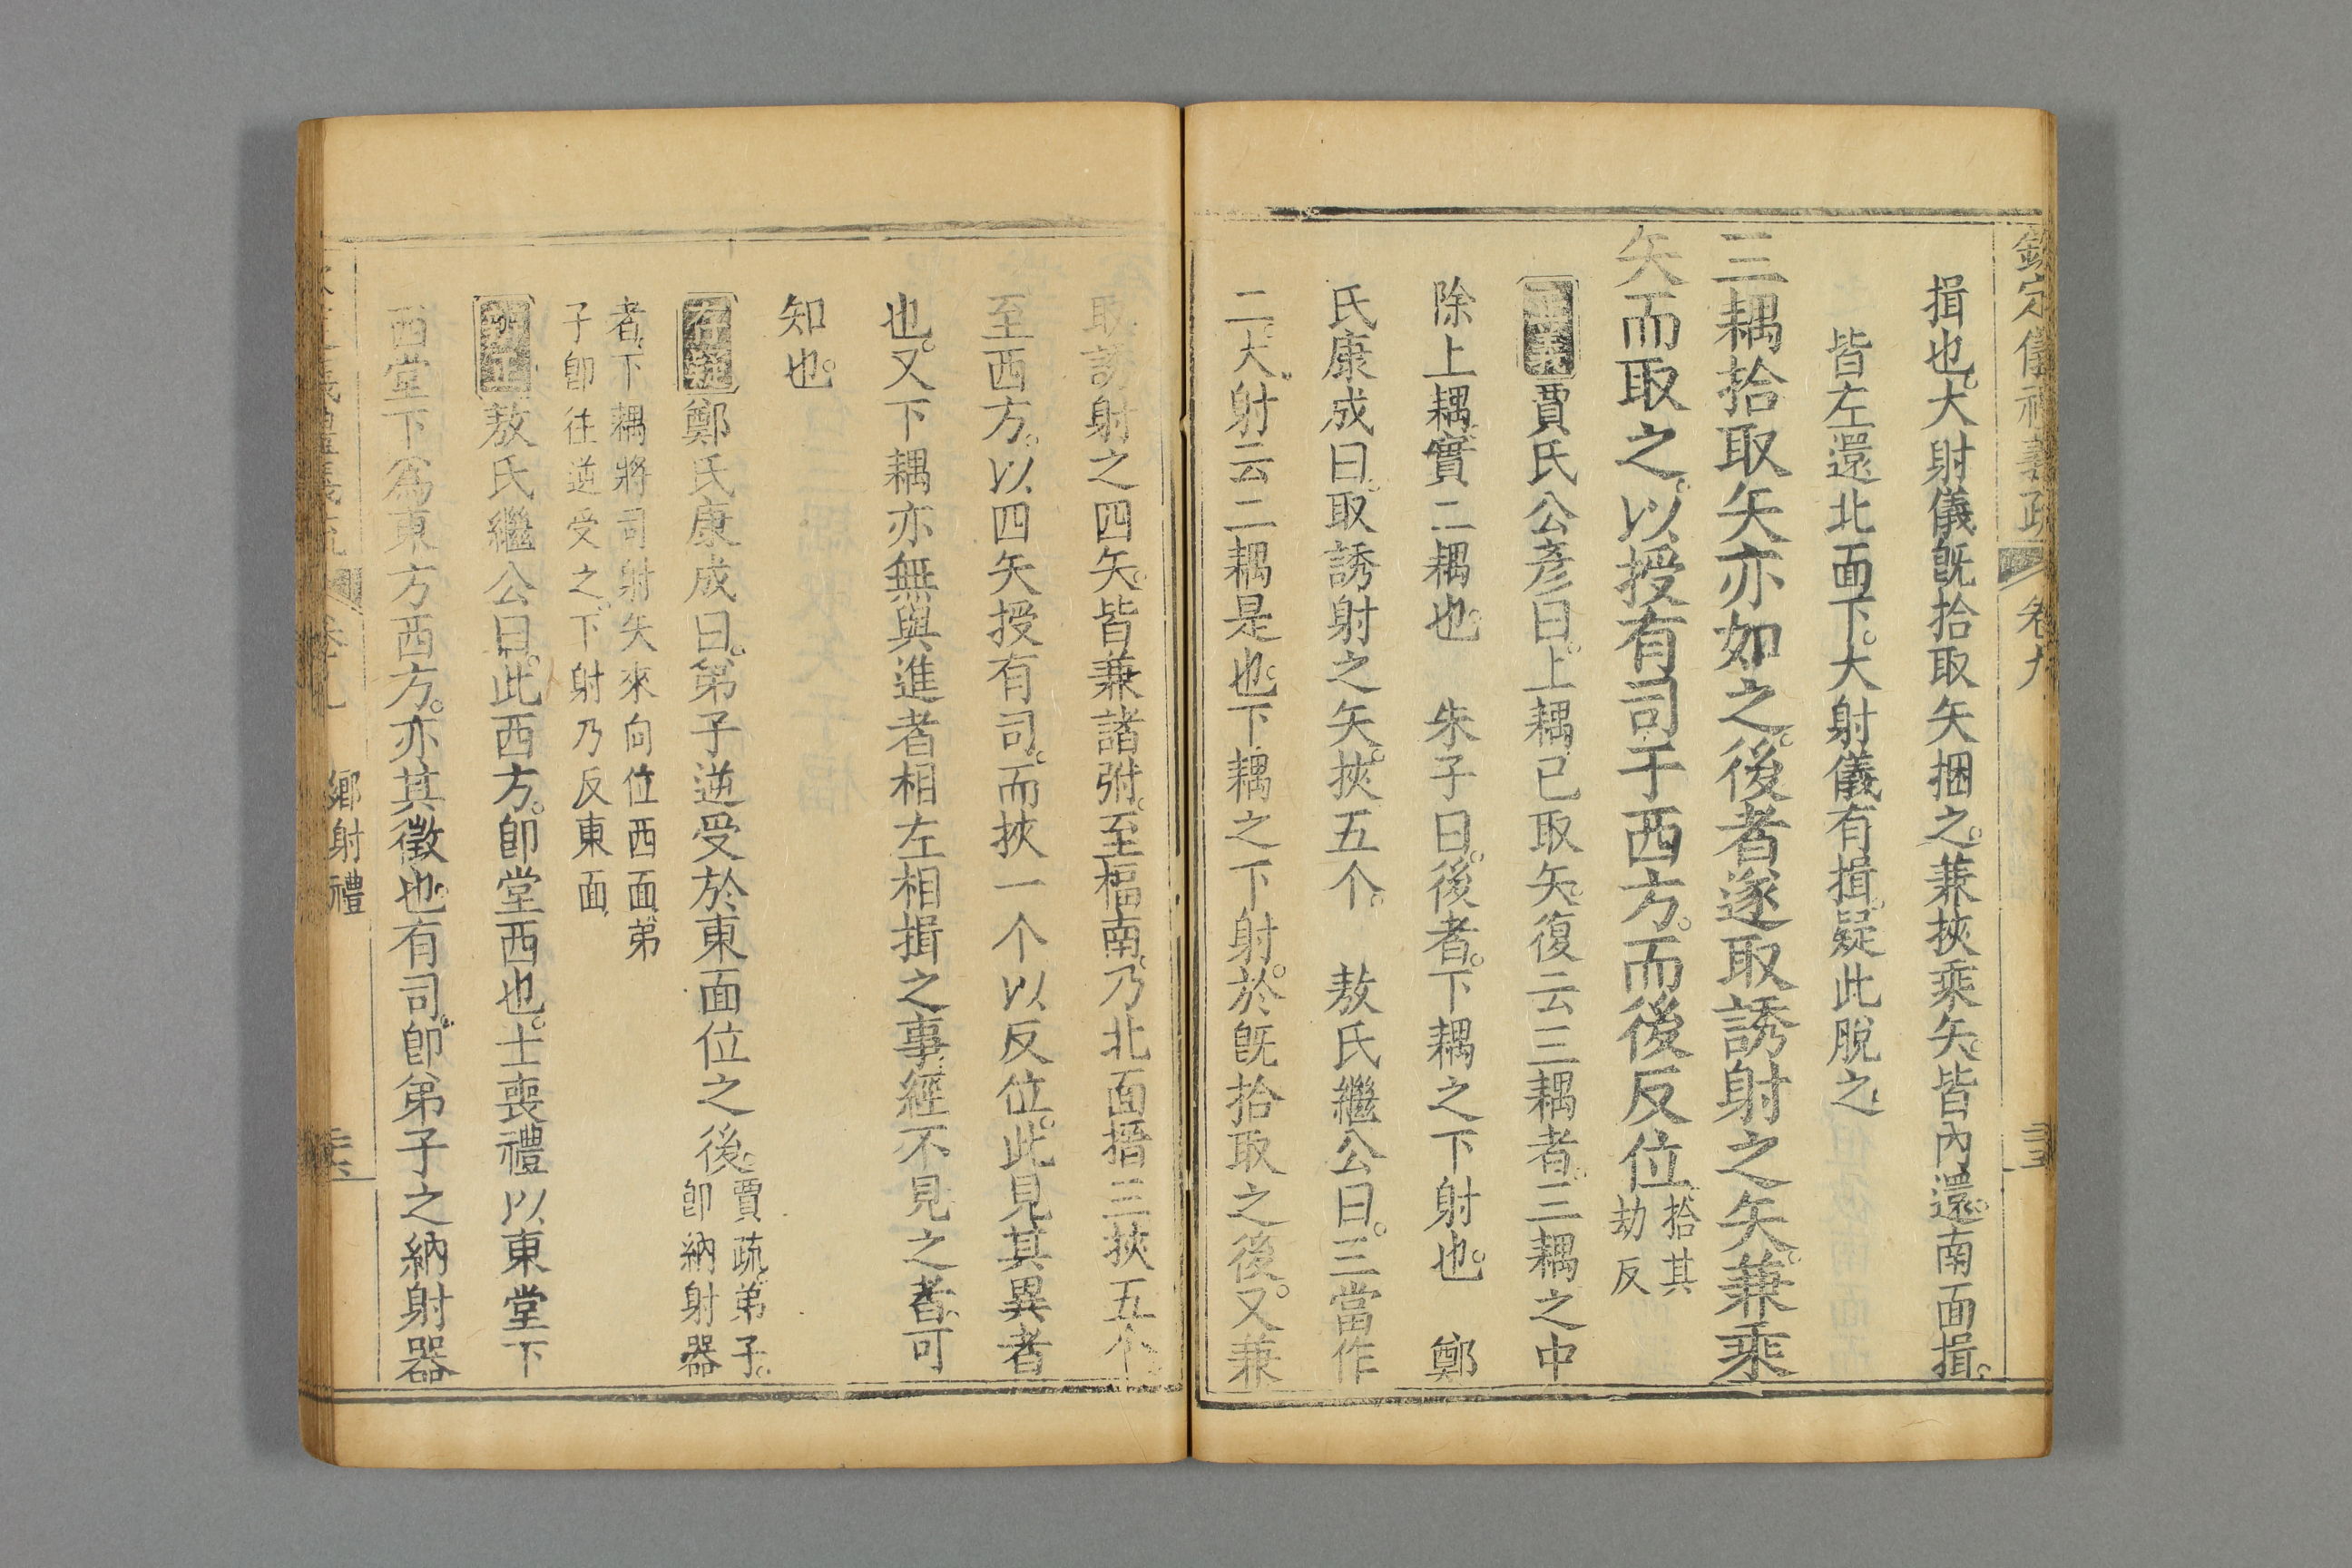 欽定儀禮義疏 卷九
揖也。大射儀既拾取矢捆之。兼挾乘矢。皆內還。南面揖。
皆左還北面下。大射儀有揖。疑此脫之
三耦拾取矢亦如之。後者遂取誘射之矢。兼乘
矢而取之。以授有司于西方。而後反位拾其
劫反
正義賈氏公彥曰。上耦已取矢。復云三耦者。三耦之中
除上耦。實二耦也 朱子曰。後者。下耦之下射也。 鄭
氏康成曰。取誘射之矢。挾五个。 敖氏繼公曰。三當作
二。大射云二耦是也。下耦之下射。於既拾取之後。又兼
取誘射之四矢。皆兼諸弣。至楅南。乃北面搢三挾五个。
至西方。以四矢授有司。而挾一个以反位。此見其異者
也。又下耦亦無與進者相左相揖之事。經不見之者。可
知也。
存疑鄭氏康成曰。弟子逆受於東面位之後。賈疏。弟子。
即納射器
者。下耦將司射矢來向位西面弟
子即往逆受之。下射乃反東面
辨正敖氏繼公曰。此西方。即堂西也。士喪禮以東堂下
西堂下為東方西方。亦其徵也。有司。即弟子之納射器
鄉射禮